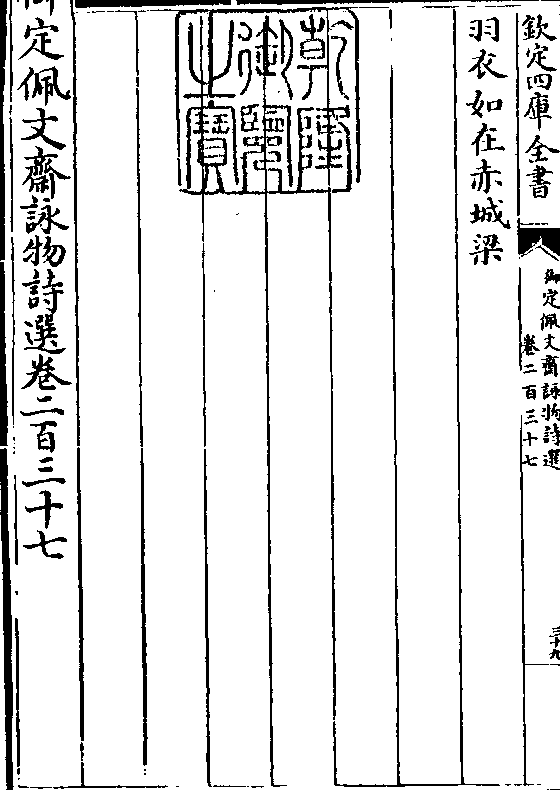 欽定四庫全書
御定佩文齋詠物詩選
卷二百三十七
三十九
羽衣如在赤城梁
乾隆御覽之寶
御定佩文齋詠物詩選卷二百三十七